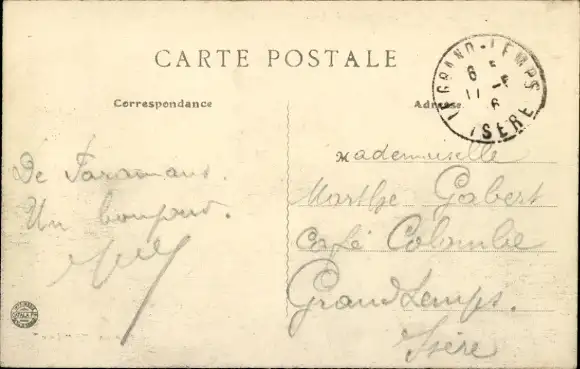 CARTE POSTALE
Correspondance
Adresse
LE GRAND-LEMPS
ISÈRE
De Faramans.
Un bonjour.
Mademoiselle
Marthe Gabert
Café Colombe
Grand Lemps.
Isère